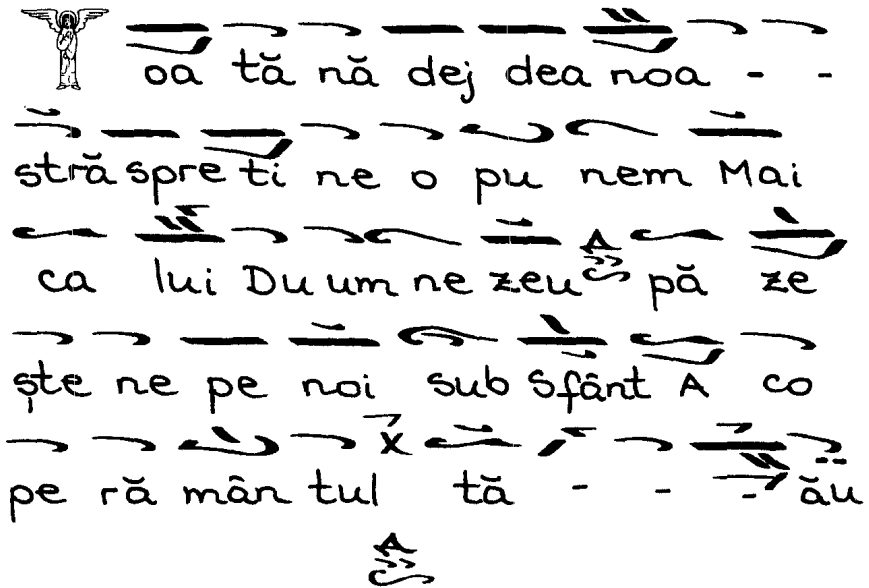 Toa tă nă dej dea noa - -
stră spre ti ne o pu nem Mai
ca lui Du um ne zeu pă ze
ște ne pe noi sub Sfânt A co
pe ră mân tul tă - - - ău